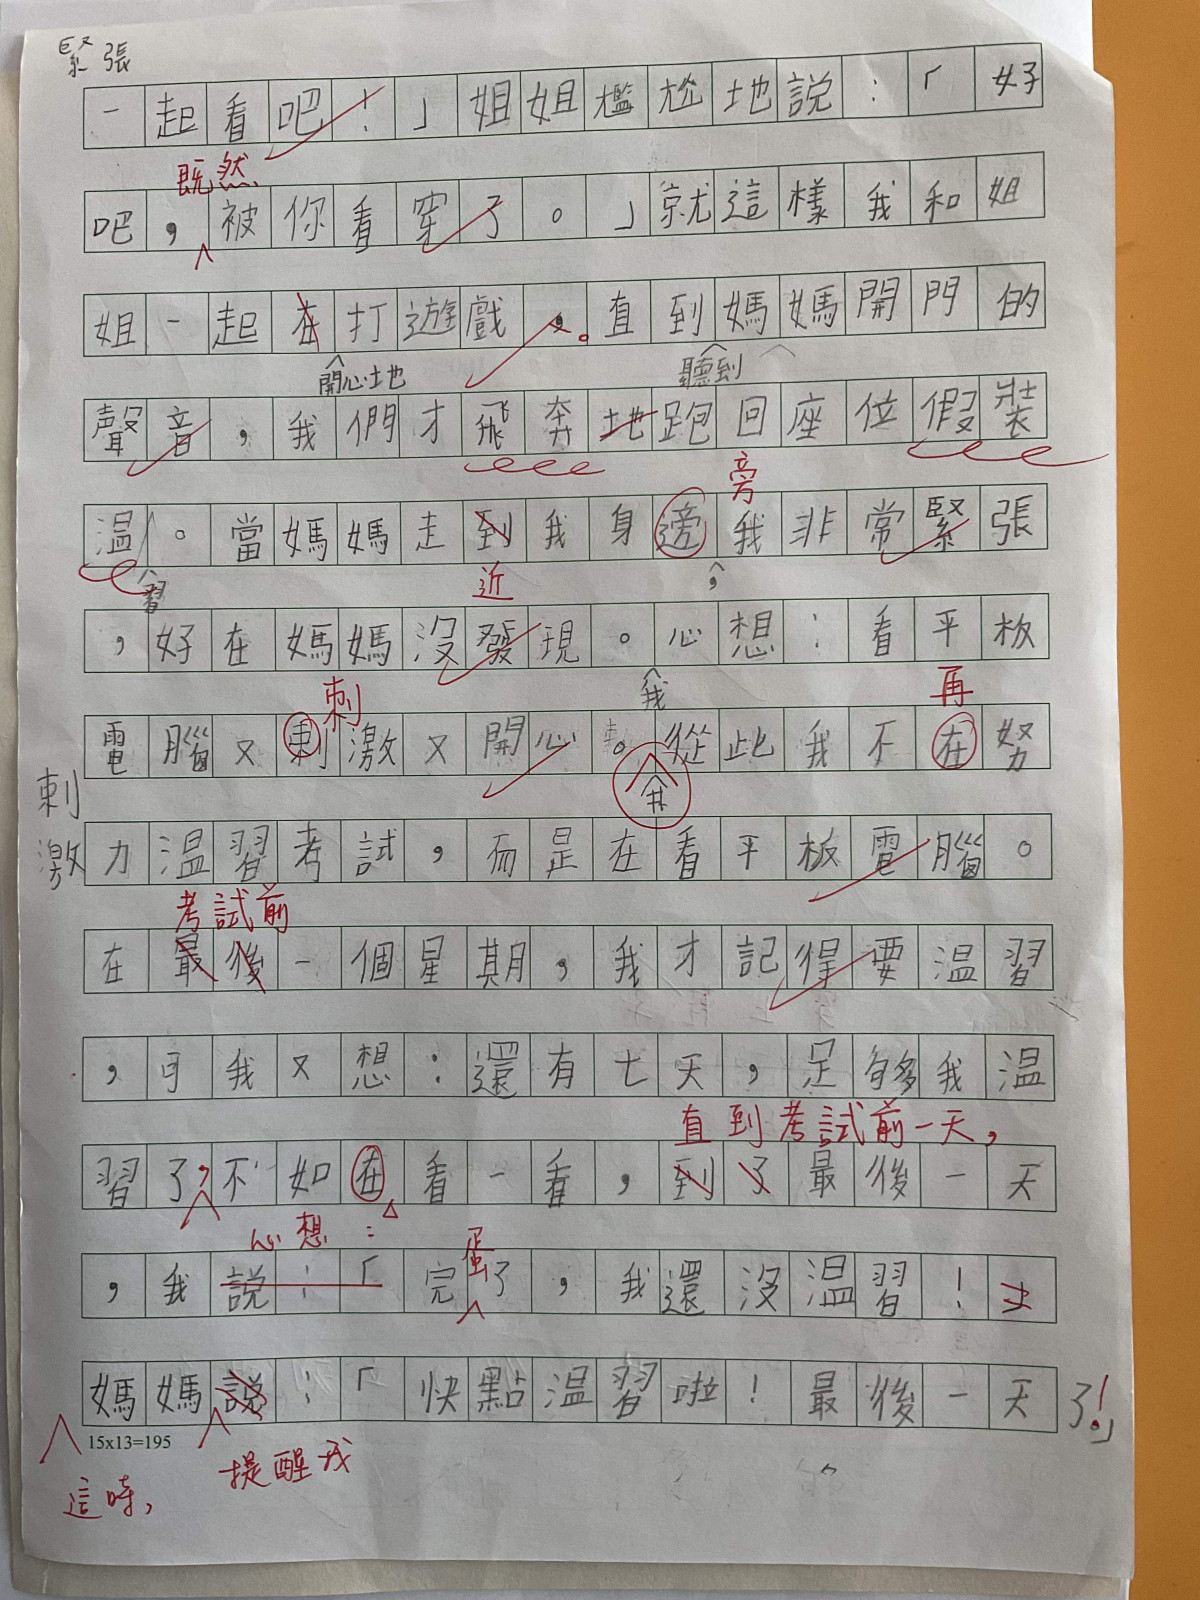 緊張
一起看吧！」姐姐尷尬地說：「好
既然
吧，被你看穿了。」就這樣我和姐
姐一起在打遊戲，。直到媽媽開門的
開心地 聽到
聲音，我們才飛奔地跑回座位假裝
旁
溫。當媽媽走到我身邊我非常緊張
習 近 ，
，好在媽媽沒發現。心想：看平板
刺 我 再
電腦又刺激又開心。從此我不在努
刺激
力溫習考試，而是在看平板電腦。
考試前
在最後一個星期，我才記得要溫習
，可我又想：還有七天，足夠我溫
直到考試前一天，
習了，不如在看一看，到了最後一天
心想： 蛋
，我說：「完了，我還沒溫習！
媽媽說：「快點溫習啦！最後一天了！」
15x13=195
這時， 提醒我